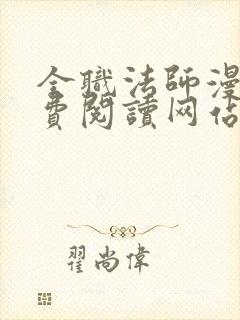 全職法師漫
費閱讀网佔
翟尚偉